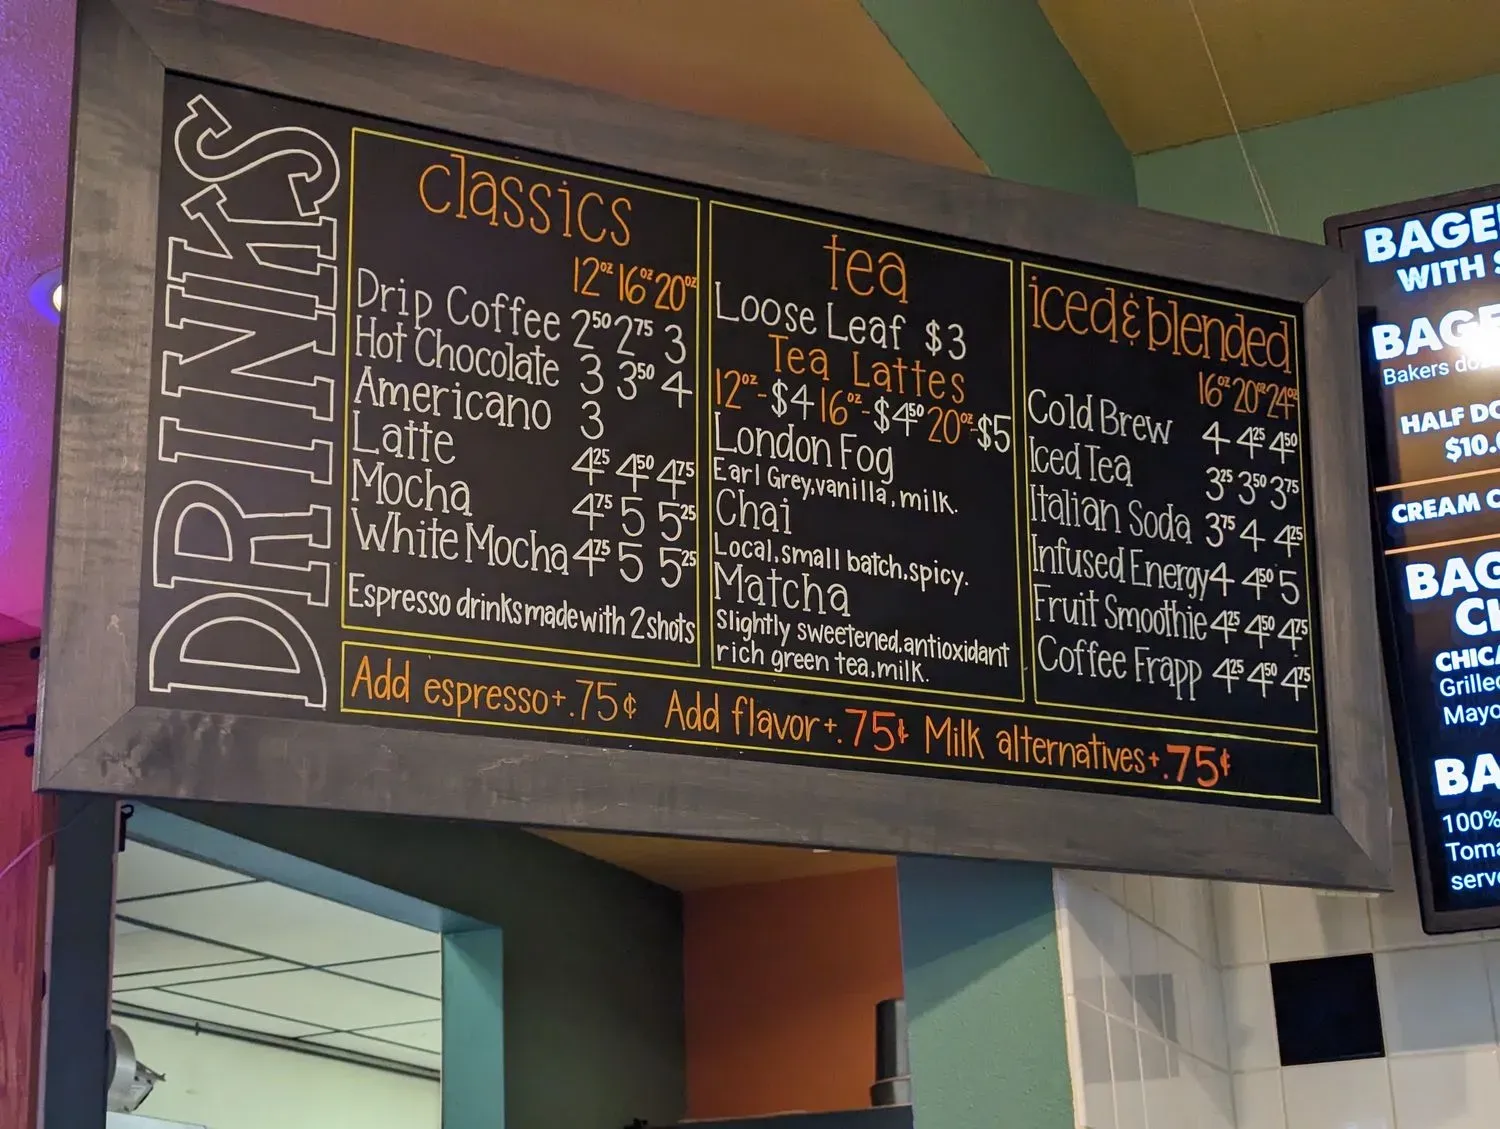 DRINKS
classics
12oz 16oz 20oz
Drip Coffee 2.50 2.75 3
Hot Chocolate 3 3.50 4
Americano 3
Latte 4.25 4.50 4.75
Mocha 4.75 5 5.25
White Mocha 4.75 5 5.25
Espresso drinks made with 2 shots
tea
Loose Leaf $3
Tea Lattes
12oz-$4 16oz-$4.50 20oz-$5
London Fog
Earl Grey, vanilla, milk.
Chai
Local, small batch, spicy.
Matcha
Slightly sweetened, antioxidant
rich green tea, milk.
iced & blended
16oz 20oz 24oz
Cold Brew 4 4.25 4.50
Iced Tea 3.25 3.50 3.75
Italian Soda 3.75 4 4.25
Infused Energy 4 4.50 5
Fruit Smoothie 4.25 4.50 4.75
Coffee Frapp 4.25 4.50 4.75
Add espresso +.75¢ Add flavor +.75¢ Milk alternatives +.75¢
WITH
Bakers
HALF
CREAM
Grilled
100%